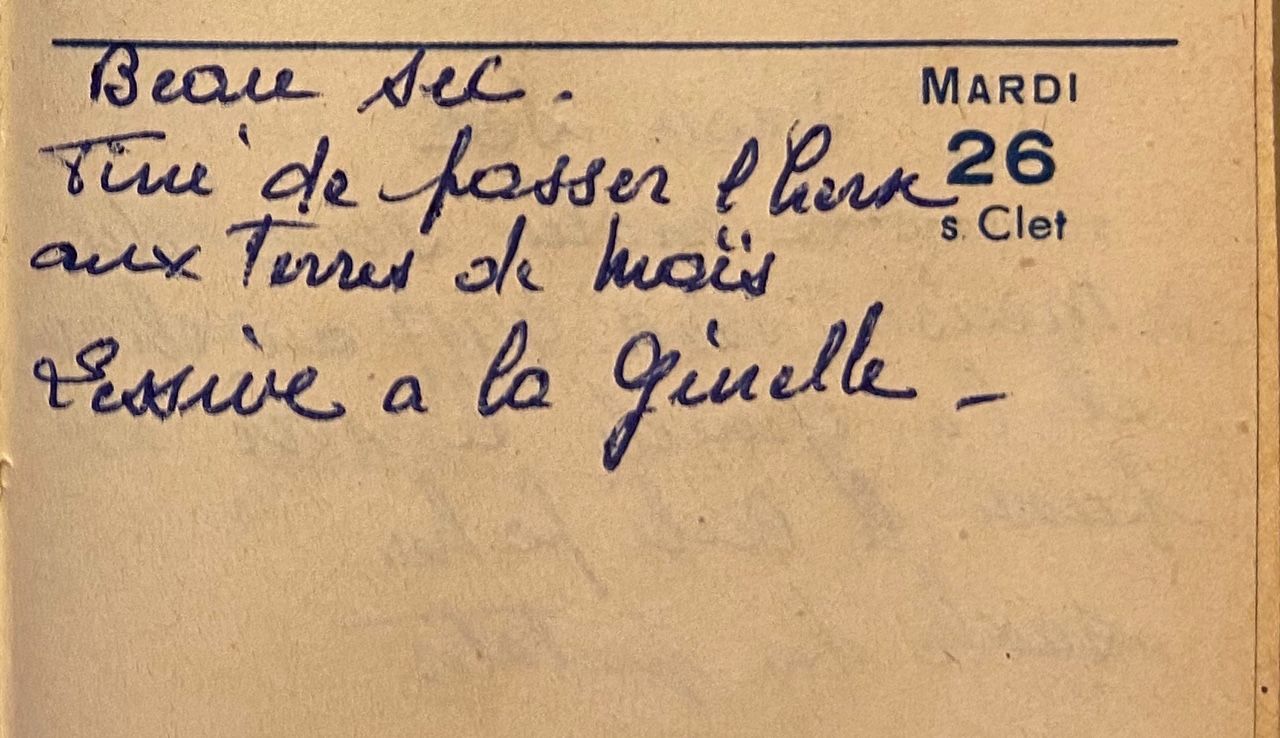 Beau sec.
MARDI
Fini de passer l herse
26
s. Clet
aux Terres de maïs
Lessive a la Ginelle -